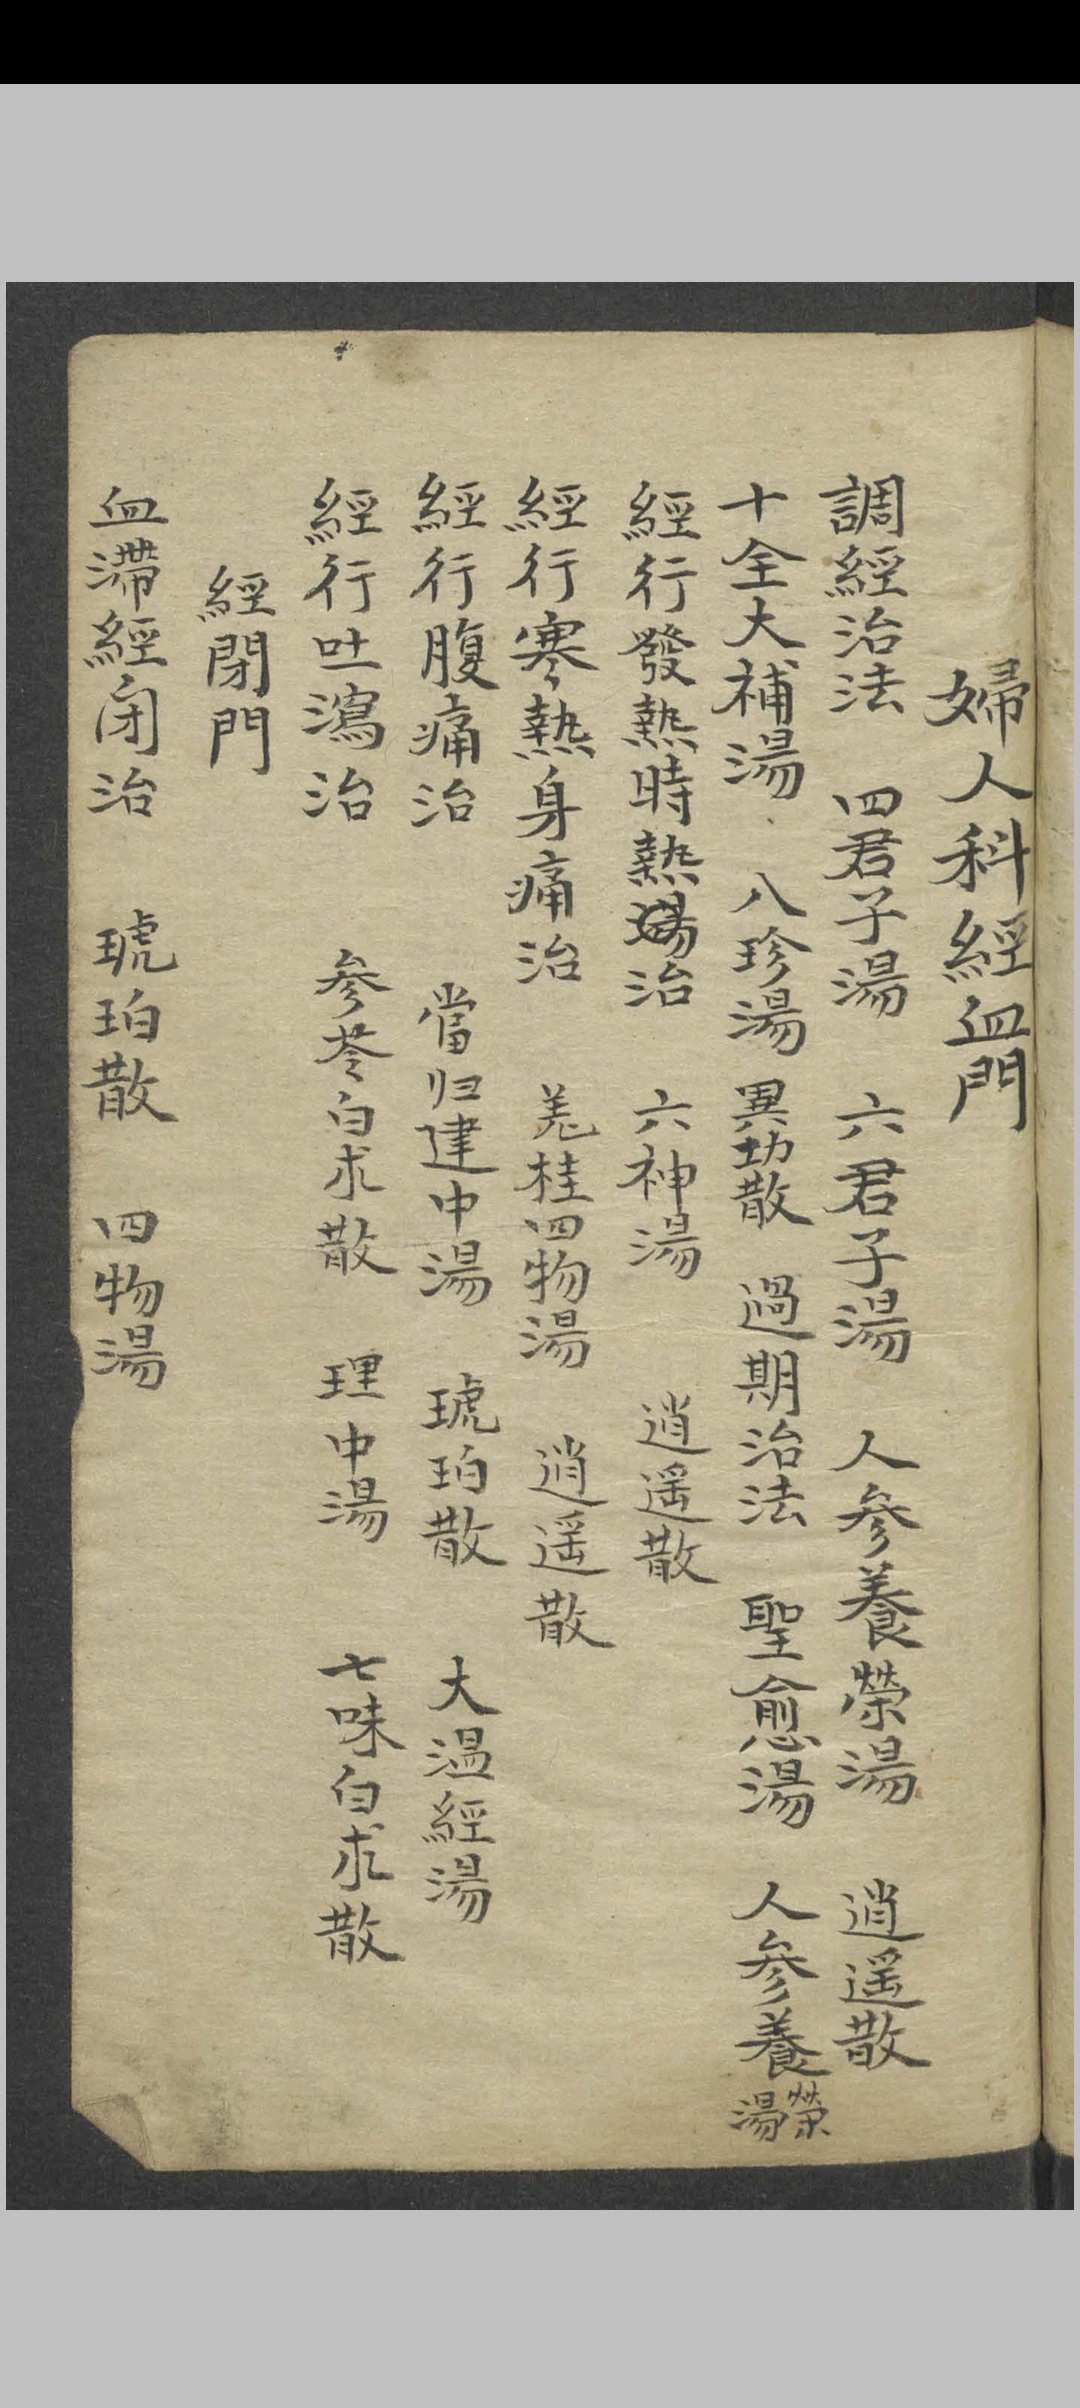 婦人科經血門
調經治法 四君子湯 六君子湯 人參養榮湯 逍遥散
十全大補湯 八珍湯 異功散 過期治法 聖愈湯 人參養榮湯
經行發熱時熱治 六神湯 逍遥散
經行寒熱身痛治 羗桂四物湯 逍遥散
經行腹痛治 當归建中湯 琥珀散 大温經湯
經行吐瀉治 參苓白术散 理中湯 七味白术散
經閉門
血滯經闭治 琥珀散 四物湯